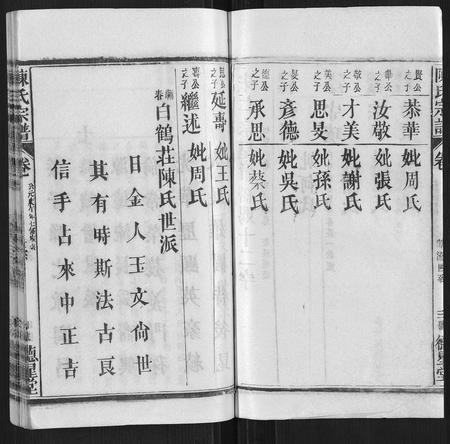 陳氏宗譜
卷
賢公之子 恭華 妣周氏
華公之子 汝敬 妣張氏
敬公之子 才美 妣謝氏
美公之子 思旻 妣孫氏
旻公之子 彥德 妣吳氏
德公之子 承思 妣蔡氏
思公之子 延壽 妣王氏
壽公之子 繼述 妣周氏
蘄春白鶴莊陳氏世派
日金人玉文尙世
其有時斯法古艮
信手占來中正吉
陳氏宗譜
卷一
德星堂